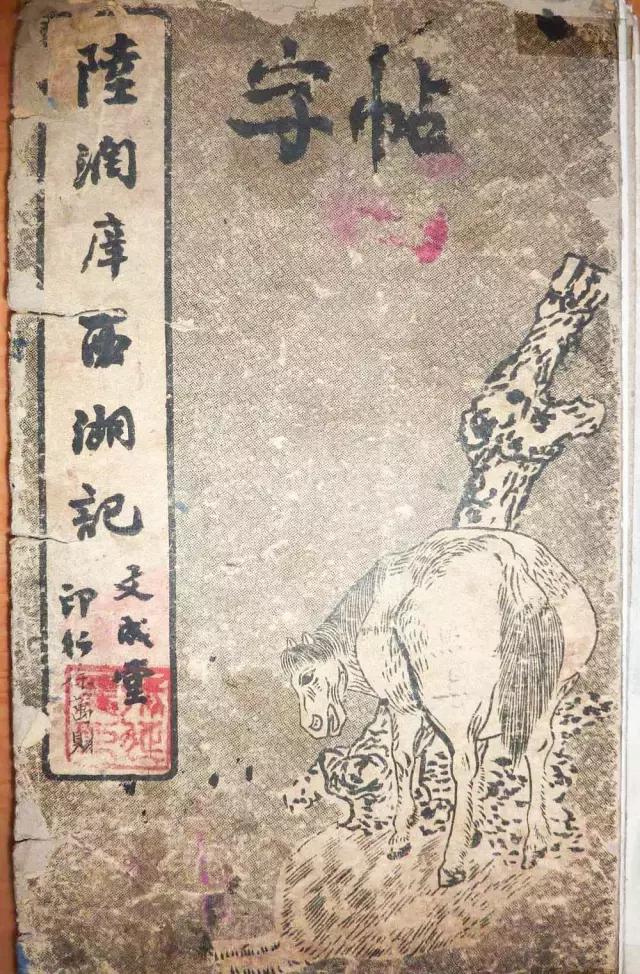 字帖
陸潤庠西湖記
文成堂
印行
萬財